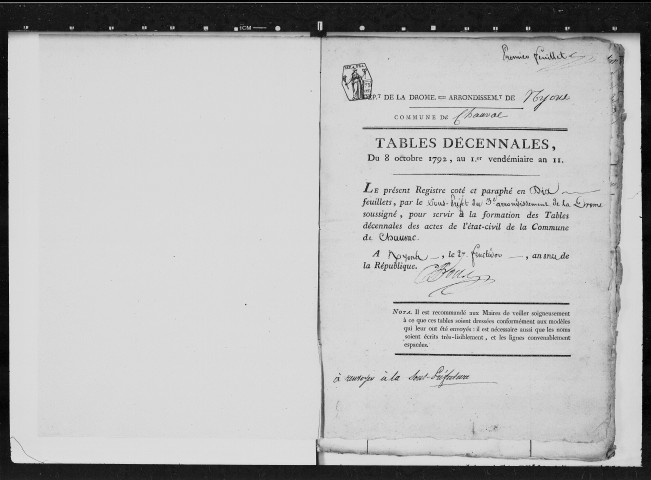 Premier feuillet
DÉP.T DE LA DROME. = ARRONDISSEM.T DE Nyons
COMMUNE DE Chauvac
TABLES DÉCENNALES,
Du 8 octobre 1792, au 1.er vendémiaire an 11.
LE présent Registre coté et paraphé en Dix
feuillets, par le Sous-Préfet du 3e arrondissement de la Drome
soussigné, pour servir à la formation des Tables
décennales des actes de l'état-civil de la Commune
de Chauvac.
A Nyons, le 2 fructidor, an onze de
la République.
NOTA. Il est recommandé aux Maires de veiller soigneusement
à ce que ces tables soient dressées conformément aux modèles
qui leur ont été envoyés : il est nécessaire aussi que les noms
soient écrits très-lisiblement, et les lignes convenablement
espacées.
à renvoyer à la Sous-Préfecture